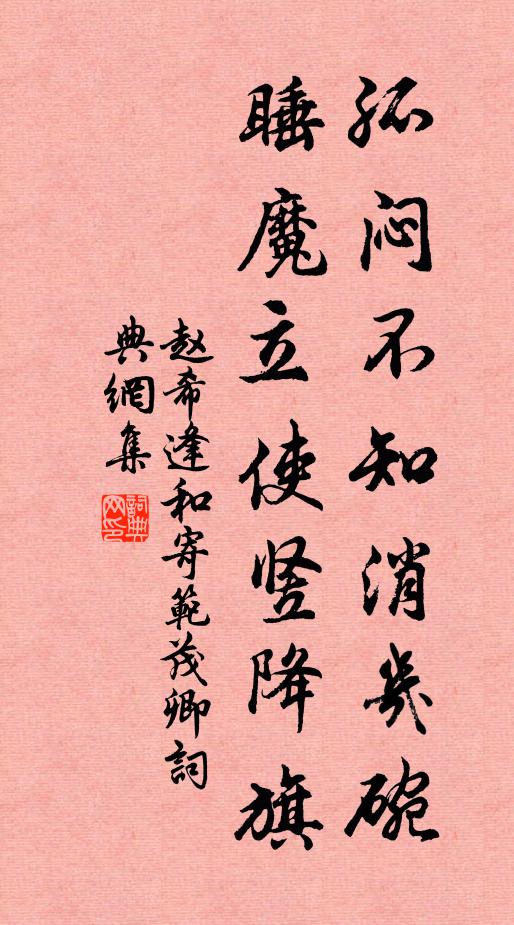 孤闷不知消几碗
睡魔立使竖降旗
赵希逢和寄範茂卿詞
典網集
詞典网印